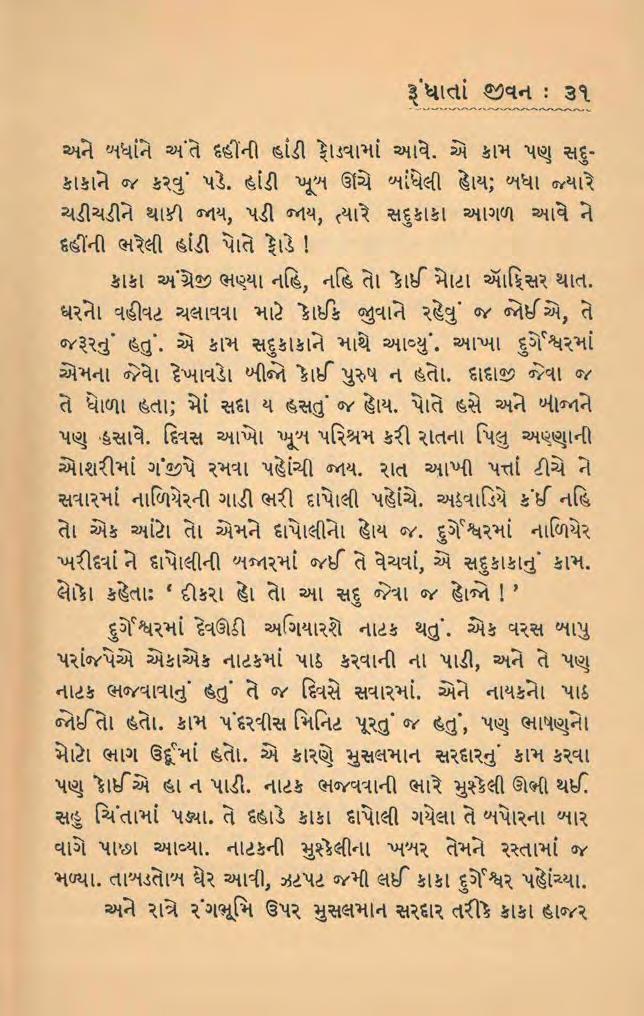 રૂંધાતાં જીવન : ૩૧
અને બધાંને અંતે દહીંની હાંડી ફોડવામાં આવે. એ કામ પણ સદુ-
કાકાને જ કરવું પડે. હાંડી ખૂબ ઊંચે બાંધેલી હોય; બધા જ્યારે
ચડીચડીને થાકી જાય, પડી જાય, ત્યારે સદુકાકા આગળ આવે ને
દહીંની ભરેલી હાંડી પોતે ફોડે !
કાકા અંગ્રેજી ભણ્યા નહિ, નહિ તો કોઈ મોટા ઑફિસર થાત.
ઘરનો વહીવટ ચલાવવા માટે કોઈક જુવાને રહેવું જ જોઈએ, તે
જરૂરનું હતું. એ કામ સદુકાકાને માથે આવ્યું. આખા દુર્ગેશ્વરમાં
એમના જેવો દેખાવડો બીજો કોઈ પુરુષ ન હતો. દાદાજી જેવા જ
તે ધોળા હતા; મોં સદા ય હસતું જ હોય. પોતે હસે અને બીજાને
પણ હસાવે. દિવસ આખો ખૂબ પરિશ્રમ કરી રાતના પિલુ અણ્ણાની
ઓશરીમાં ગંજીપે રમવા પહોંચી જાય. રાત આખી પત્તાં ટીચે ને
સવારમાં નાળિયેરની ગાડી ભરી દાપોલી પહોંચે. અઠવાડિયે કંઈ નહિ
તો એક આંટો તો એમને દાપોલીનો હોય જ. દુર્ગેશ્વરમાં નાળિયેર
ખરીદવાં ને દાપોલીની બજારમાં જઈ તે વેચવાં, એ સદુકાકાનું કામ.
લોકો કહેતાઃ ‘ દીકરા હો તો આ સદુ જેવા જ હોજો ! ’
દુર્ગેશ્વરમાં દેવઊઠી અગિયારશે નાટક થતું. એક વરસ બાપુ
પરાંજપેએ એકાએક નાટકમાં પાઠ કરવાની ના પાડી, અને તે પણ
નાટક ભજવાવાનું હતું તે જ દિવસે સવારમાં. એને નાયકનો પાઠ
જોઈતો હતો. કામ પંદરવીસ મિનિટ પૂરતું જ હતું, પણ ભાષણનો
મોટો ભાગ ઉર્દૂમાં હતો. એ કારણે મુસલમાન સરદારનું કામ કરવા
પણ કોઈએ હા ન પાડી. નાટક ભજવવાની ભારે મુશ્કેલી ઊભી થઈ.
સહુ ચિંતામાં પડ્યા. તે દહાડે કાકા દાપોલી ગયેલા તે બપોરના બાર
વાગે પાછા આવ્યા. નાટકની મુશ્કેલીના ખબર તેમને રસ્તામાં જ
મળ્યા. તાબડતોબ ઘેર આવી, ઝટપટ જમી લઈ કાકા દુર્ગેશ્વર પહોંચ્યા.
અને રાત્રે રંગભૂમિ ઉપર મુસલમાન સરદાર તરીકે કાકા હાજર